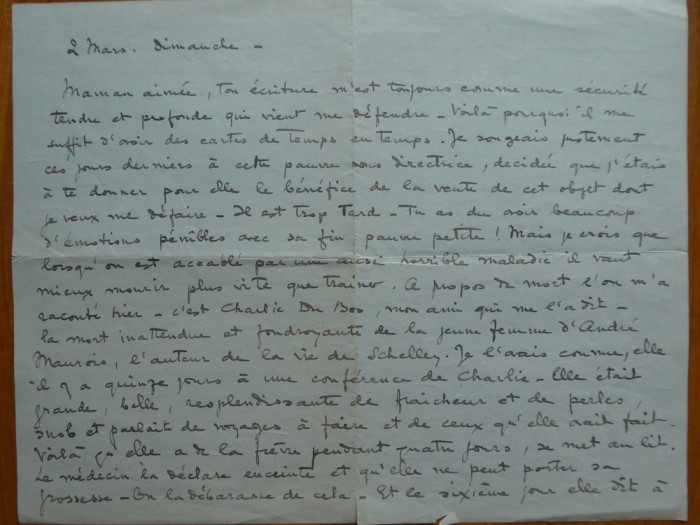 2 Mars. Dimanche -
Maman aimée, ton écriture m'est toujours comme une sécurité
tendre et profonde qui vient me défendre - Voilà pourquoi il me
suffit d'avoir des cartes de temps en temps. Je songeais justement
ces jours derniers à cette pauvre sous directrice, décidée que j'étais
à te donner pour elle le bénéfice de la vente de cet objet dont
je veux me défaire - Il est trop tard - Tu as du avoir beaucoup
d'émotions pénibles avec sa fin pauvre petite ! Mais je crois que
lorsqu'on est accablé par une aussi horrible maladie il vaut
mieux mourir plus vite que trainer. A propos de mort l'on m'a
raconté hier - c'est Charlie Du Bos, mon ami qui me l'a dit -
la mort inattendue et foudroyante de la jeune femme d'André
Maurois, l'auteur de la vie de Schelley. Je l'avais connue, elle
il y a quinze jours à une conférence de Charlie - Elle était
grande, belle, resplendissante de fraicheur et de perles,
snob et parlait de voyages à faire et de ceux qu'elle avait fait.
Voilà qu'elle a de la fièvre pendant quatre jours, se met au lit.
Le médecin la déclare enceinte et qu'elle ne peut porter sa
grossesse - On la débarasse de cela - Et le sixième jour elle dit à